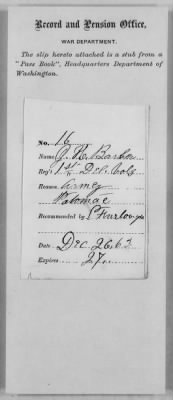 Record and Pension Office,
WAR DEPARTMENT.
The slip hereto attached is a stub from a
"Pass Book", Headquarters Department of
Washington.
No. 16
Name J. H. Barker
Reg't 1st Del. Vols
Reason Army
Potomac
Recommended by Furlough
Date Dec 26, 63
Expires 27